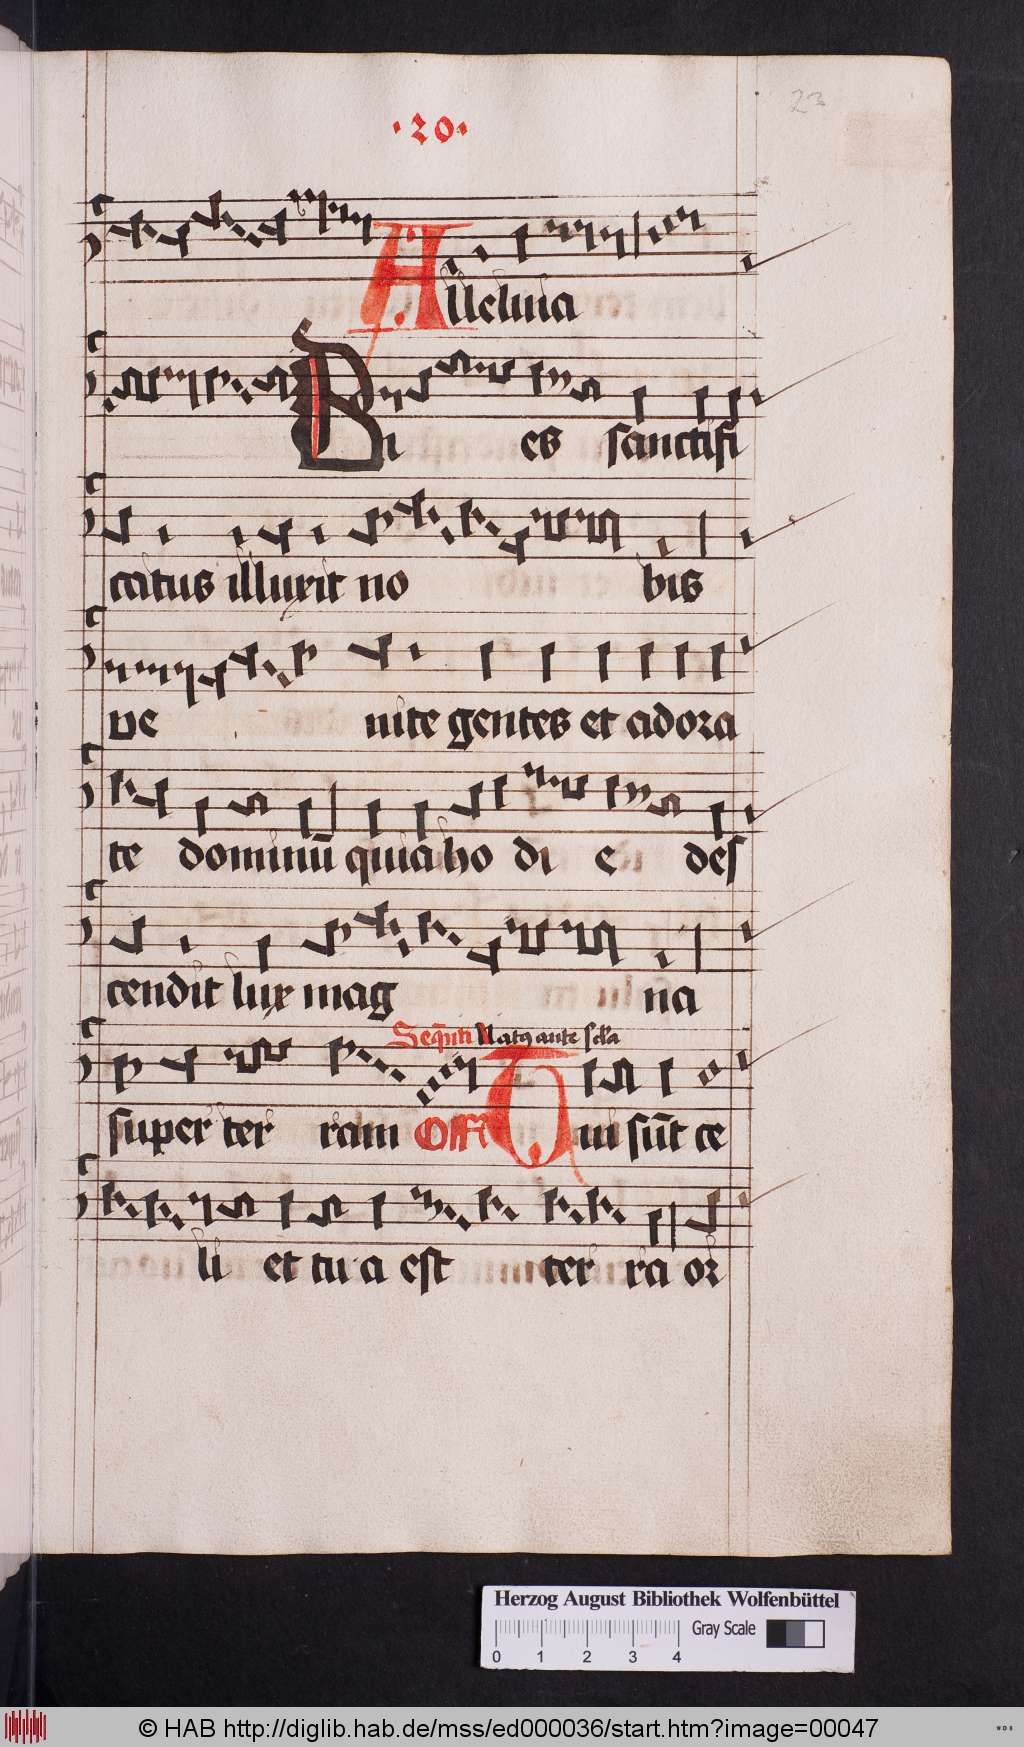 ·20·
23
Alleluia
Di es sanctifi
catus illuxit no bis
ve nite gentes et adora
te dominū quia ho di e des
cendit lux mag na
Natꝰ ante scła
super ter ram Offꝫ Tui sūt ce
li et tu a est ter ra or
Herzog August Bibliothek Wolfenbüttel
Gray Scale
0 1 2 3 4
© HAB http://diglib.hab.de/mss/ed000036/start.htm?image=00047